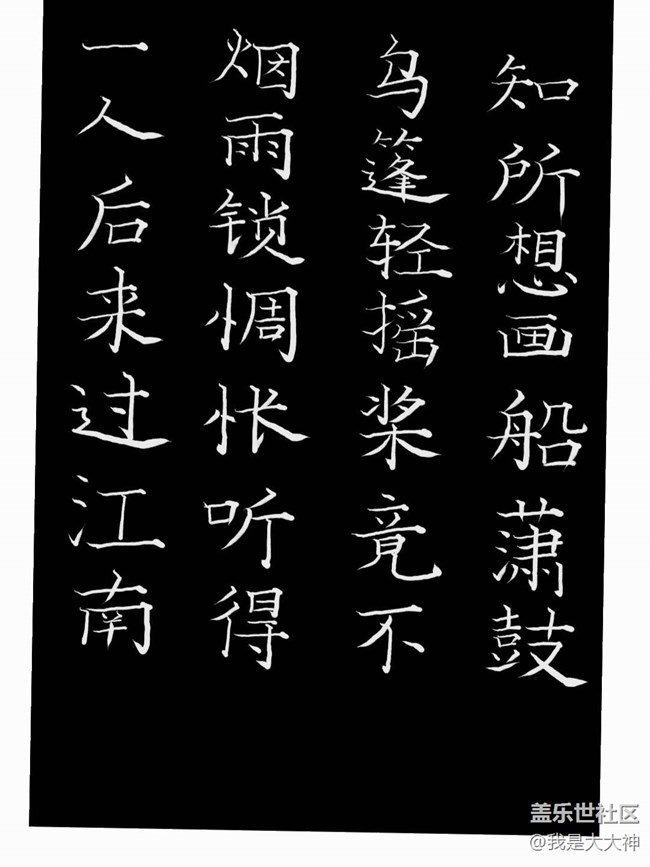 一人后来过江南
烟雨锁惆怅听得
乌篷轻摇桨竟不
知所想画船潇鼓
盖乐世社区
@我是大大神